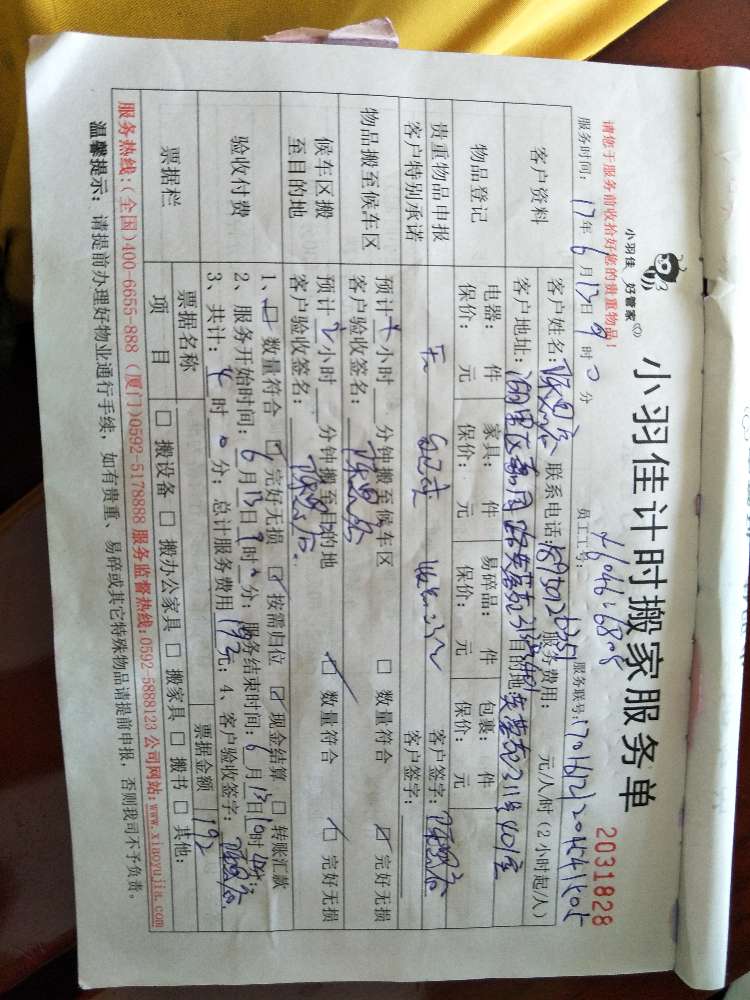 小羽佳 好管家
小羽佳计时搬家服务单
2031828
请您于服务前收拾好您的贵重物品！
员工工号：
服务联号：
服务时间：17年6月13日9时0分
客户资料
客户姓名： 联系电话： 服务费用： 元/人/时（2小时起/人）
客户地址： 目的地：
物品登记
电器： 件 家具： 件 易碎品： 件 包裹： 件
保价： 元 保价： 元 保价： 元 保价： 元
贵重物品申报
无 客户签字：
客户特别承诺
客户签字：
物品搬至候车区
预计 小时 分钟搬至候车区 □ 数量符合 ☑ 完好无损
客户验收签名：
候车区搬至目的地
预计2小时 分钟搬至目的地 ☑ 数量符合 ☑ 完好无损
客户验收签名：
验收付费
1、☑ 数量符合 ☑ 完好无损 ☑ 按需归位 ☑ 现金结算 □ 转账汇款
2、服务开始时间：6月13日9时0分；服务结束时间：6月13日10时 分；
3、共计：4时0分；总计服务费用192元；4、客户验收签字：
票据栏
票据名称 票据金额 192
项目 □ 搬设备 □ 搬办公家具 □ 搬家具 □ 搬书 □ 其他：
服务热线：(全国)400-6655-888 (厦门)0592-5178888 服务监督热线：0592-5888123 公司网站：www.xiaoyujia.com
温馨提示：请提前办理好物业通行手续，如有贵重、易碎或其它特殊物品请提前申报，否则我司不予负责。